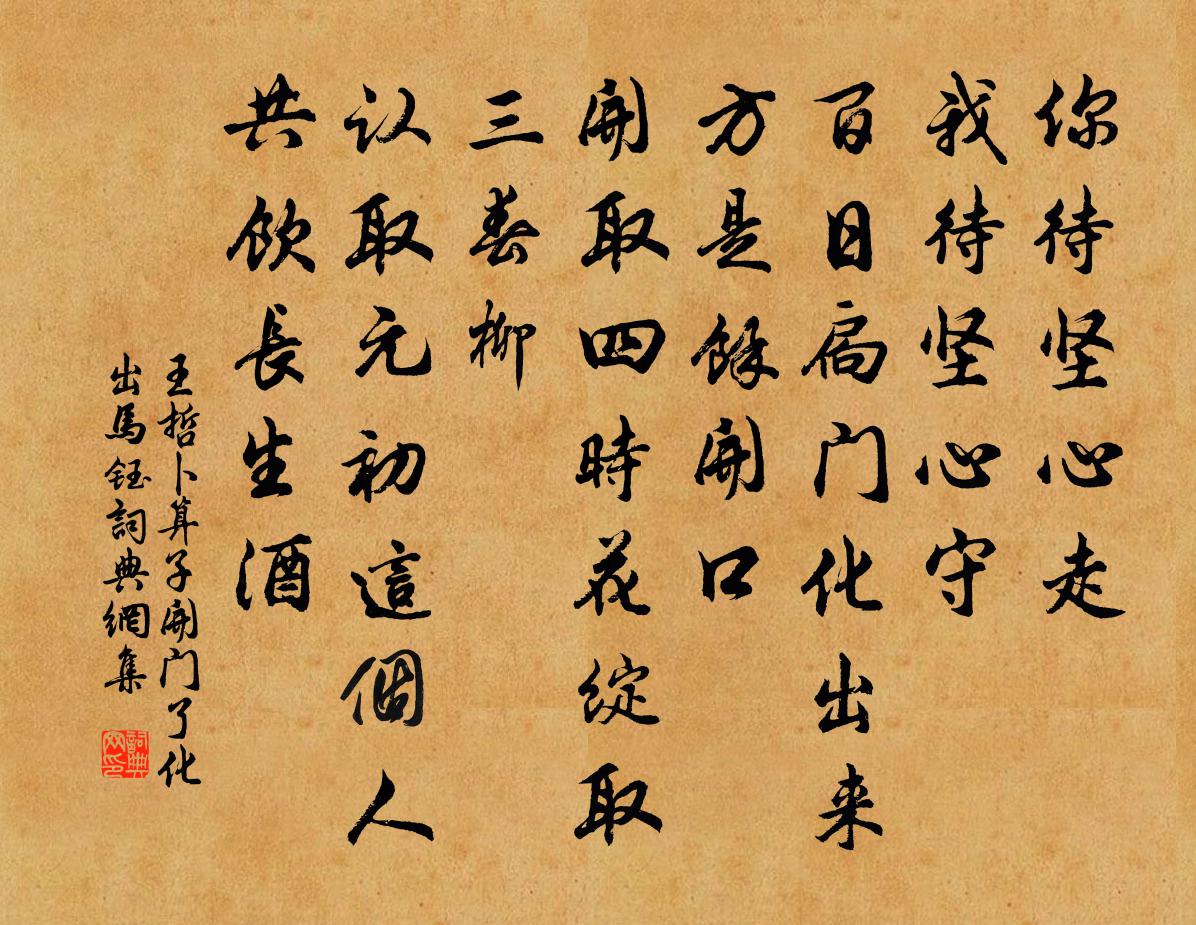 你待坚心走
我待坚心守
百日扃门化出来
方是餘開口
開取四時花綻取
三春柳
认取元初這個人
共飲長生酒
王哲卜算子開门了化
出馬鈺詞典網集
詞典網印